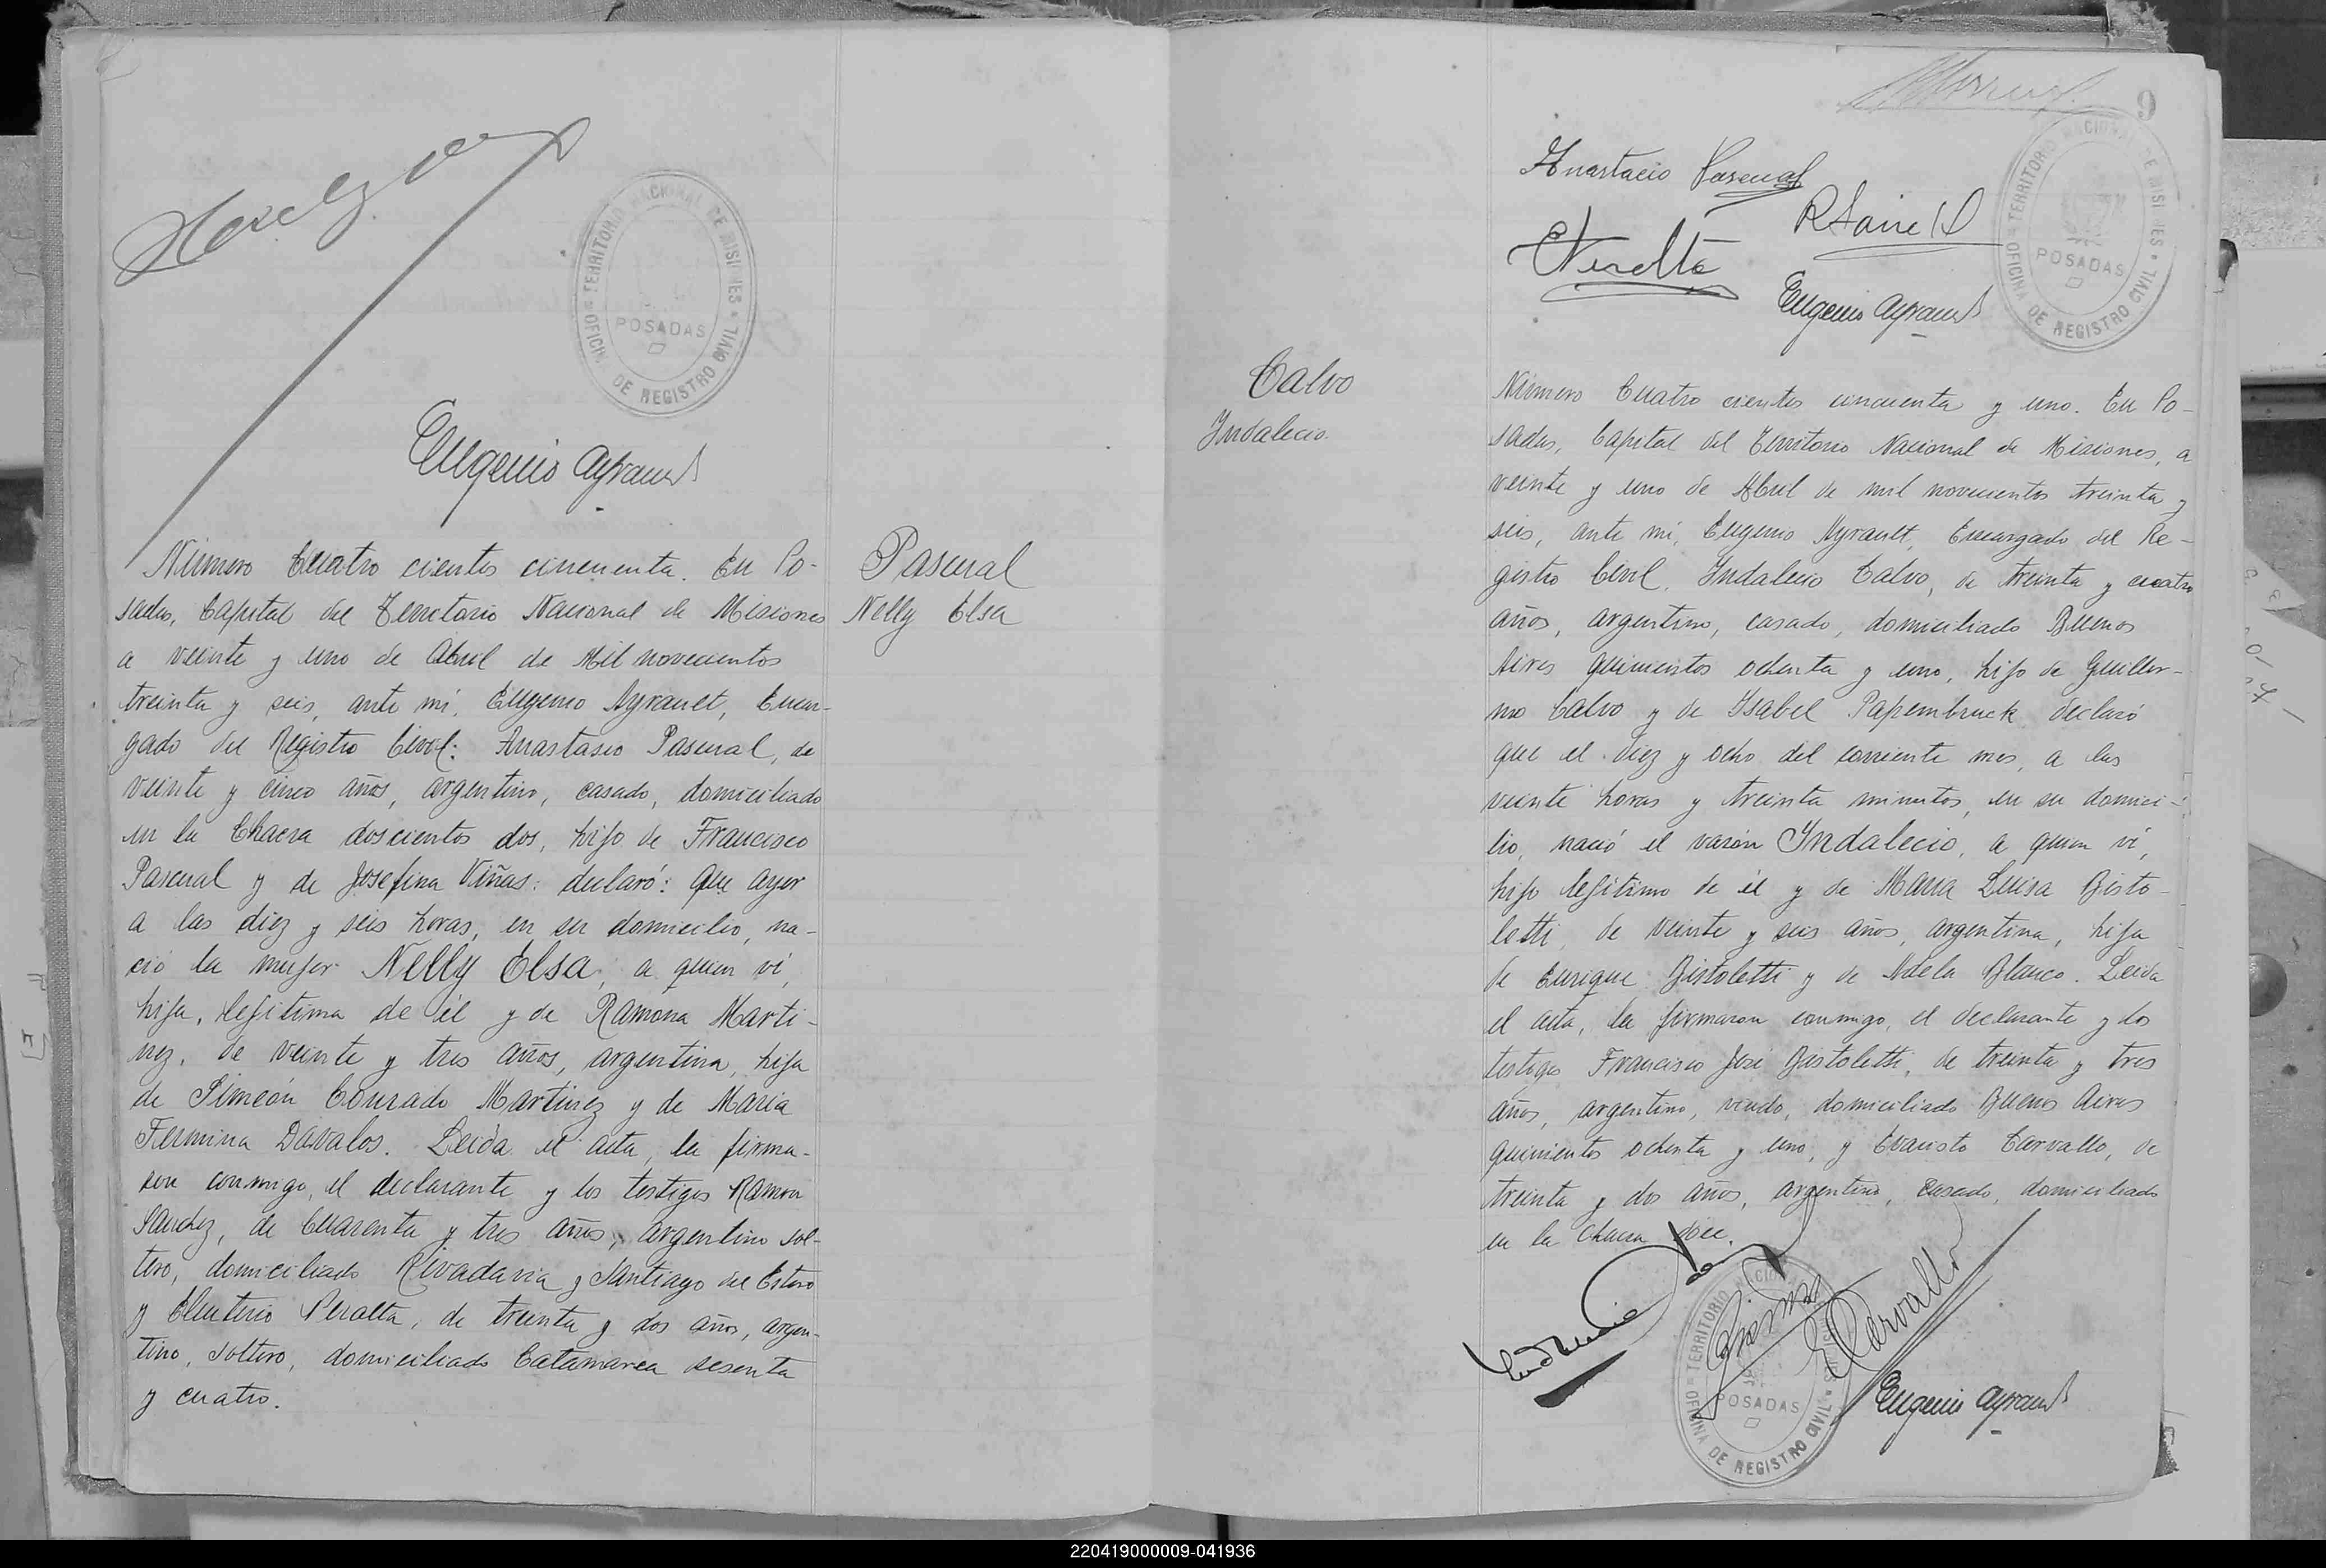 TERRITORIO NACIONAL DE MISIONES
POSADAS
OFICINA DE REGISTRO CIVIL
Eugenio Ayrault
Número Cuatro cientos cincuenta. En Po-
sadas, Capital del Territorio Nacional de Misiones
a veinte y uno de Abril de Mil novecientos
treinta y seis, ante mí, Eugenio Ayrault, Encar-
gado del Registro Civil: Anastasio Pascual, de
veinte y cinco años, argentino, casado, domiciliado
en la Chacra doscientos dos, hijo de Francisco
Pascual y de Josefina Viñas: declaró: que ayer
a las diez y seis horas, en su domicilio, na-
ció la mujer Nelly Elsa, a quien ví,
hija, legítima de él y de Ramona Marti-
nez, de veinte y tres años, argentina, hija
de Simeón Conrado Martinez y de Maria
Fermina Davalos. Leída el acta, la firma-
ron conmigo, el declarante y los testigos Ramon
Sanchez, de Cuarenta y tres años, argentino sol-
tero, domiciliado Rivadavia y Santiago del Estero
y Eleuterio Peralta, de treinta y dos años, argen-
tino, soltero, domiciliado Catamarca sesenta
y cuatro.
Pascual
Nelly Elsa
9
Anastacio Pascual
EPeralta
Eugenio Ayrault
TERRITORIO NACIONAL DE MISIONES
POSADAS
OFICINA DE REGISTRO CIVIL
Calvo
Indalecio.
Número Cuatro cientos cincuenta y uno. En Po-
sadas, Capital del Territorio Nacional de Misiones, a
veinte y uno de Abril de mil novecientos treinta y
seis, ante mí, Eugenio Ayrault, Encargado del Re-
gistro Civil, Indalecio Calvo, de treinta y cuatro
años, argentino, casado, domiciliado Buenos
Aires quinientos ochenta y uno, hijo de Guiller-
mo Calvo y de Isabel Papembruck declaró
que el diez y ocho del corriente mes, a las
veinte horas y treinta minutos, en su domici-
lio, nació el varón Indalecio, a quien ví,
hijo legítimo de él y de María Luisa Bisto-
letti, de veinte y seis años, argentina, hija
de Enrique Bistoletti y de Adela Blanco. Leída
el acta, la firmaron conmigo, el declarante y los
testigos Francisco José Bistoletti, de treinta y tres
años, argentino, viudo, domiciliado Buenos Aires
quinientos ochenta y uno, y Evaristo Carvallo, de
treinta y dos años, argentino, casado, domiciliado
en la Chacra doce.
ECarvallo
Eugenio Ayrault
TERRITORIO NACIONAL DE MISIONES
POSADAS
OFICINA DE REGISTRO CIVIL
220419000009-041936